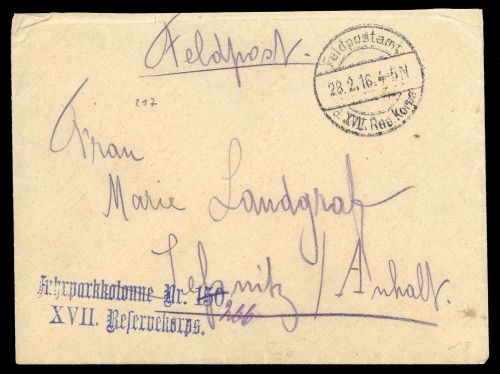 Feldpost.
Feldpostamt
28.2.16. 4-5 N
d. XVII. Res. Korps
217
Frau
Marie Landgraf
Jeßnitz / Anhalt.
Fuhrparkkolonne Nr. 150
266
XVII. Reservekorps.